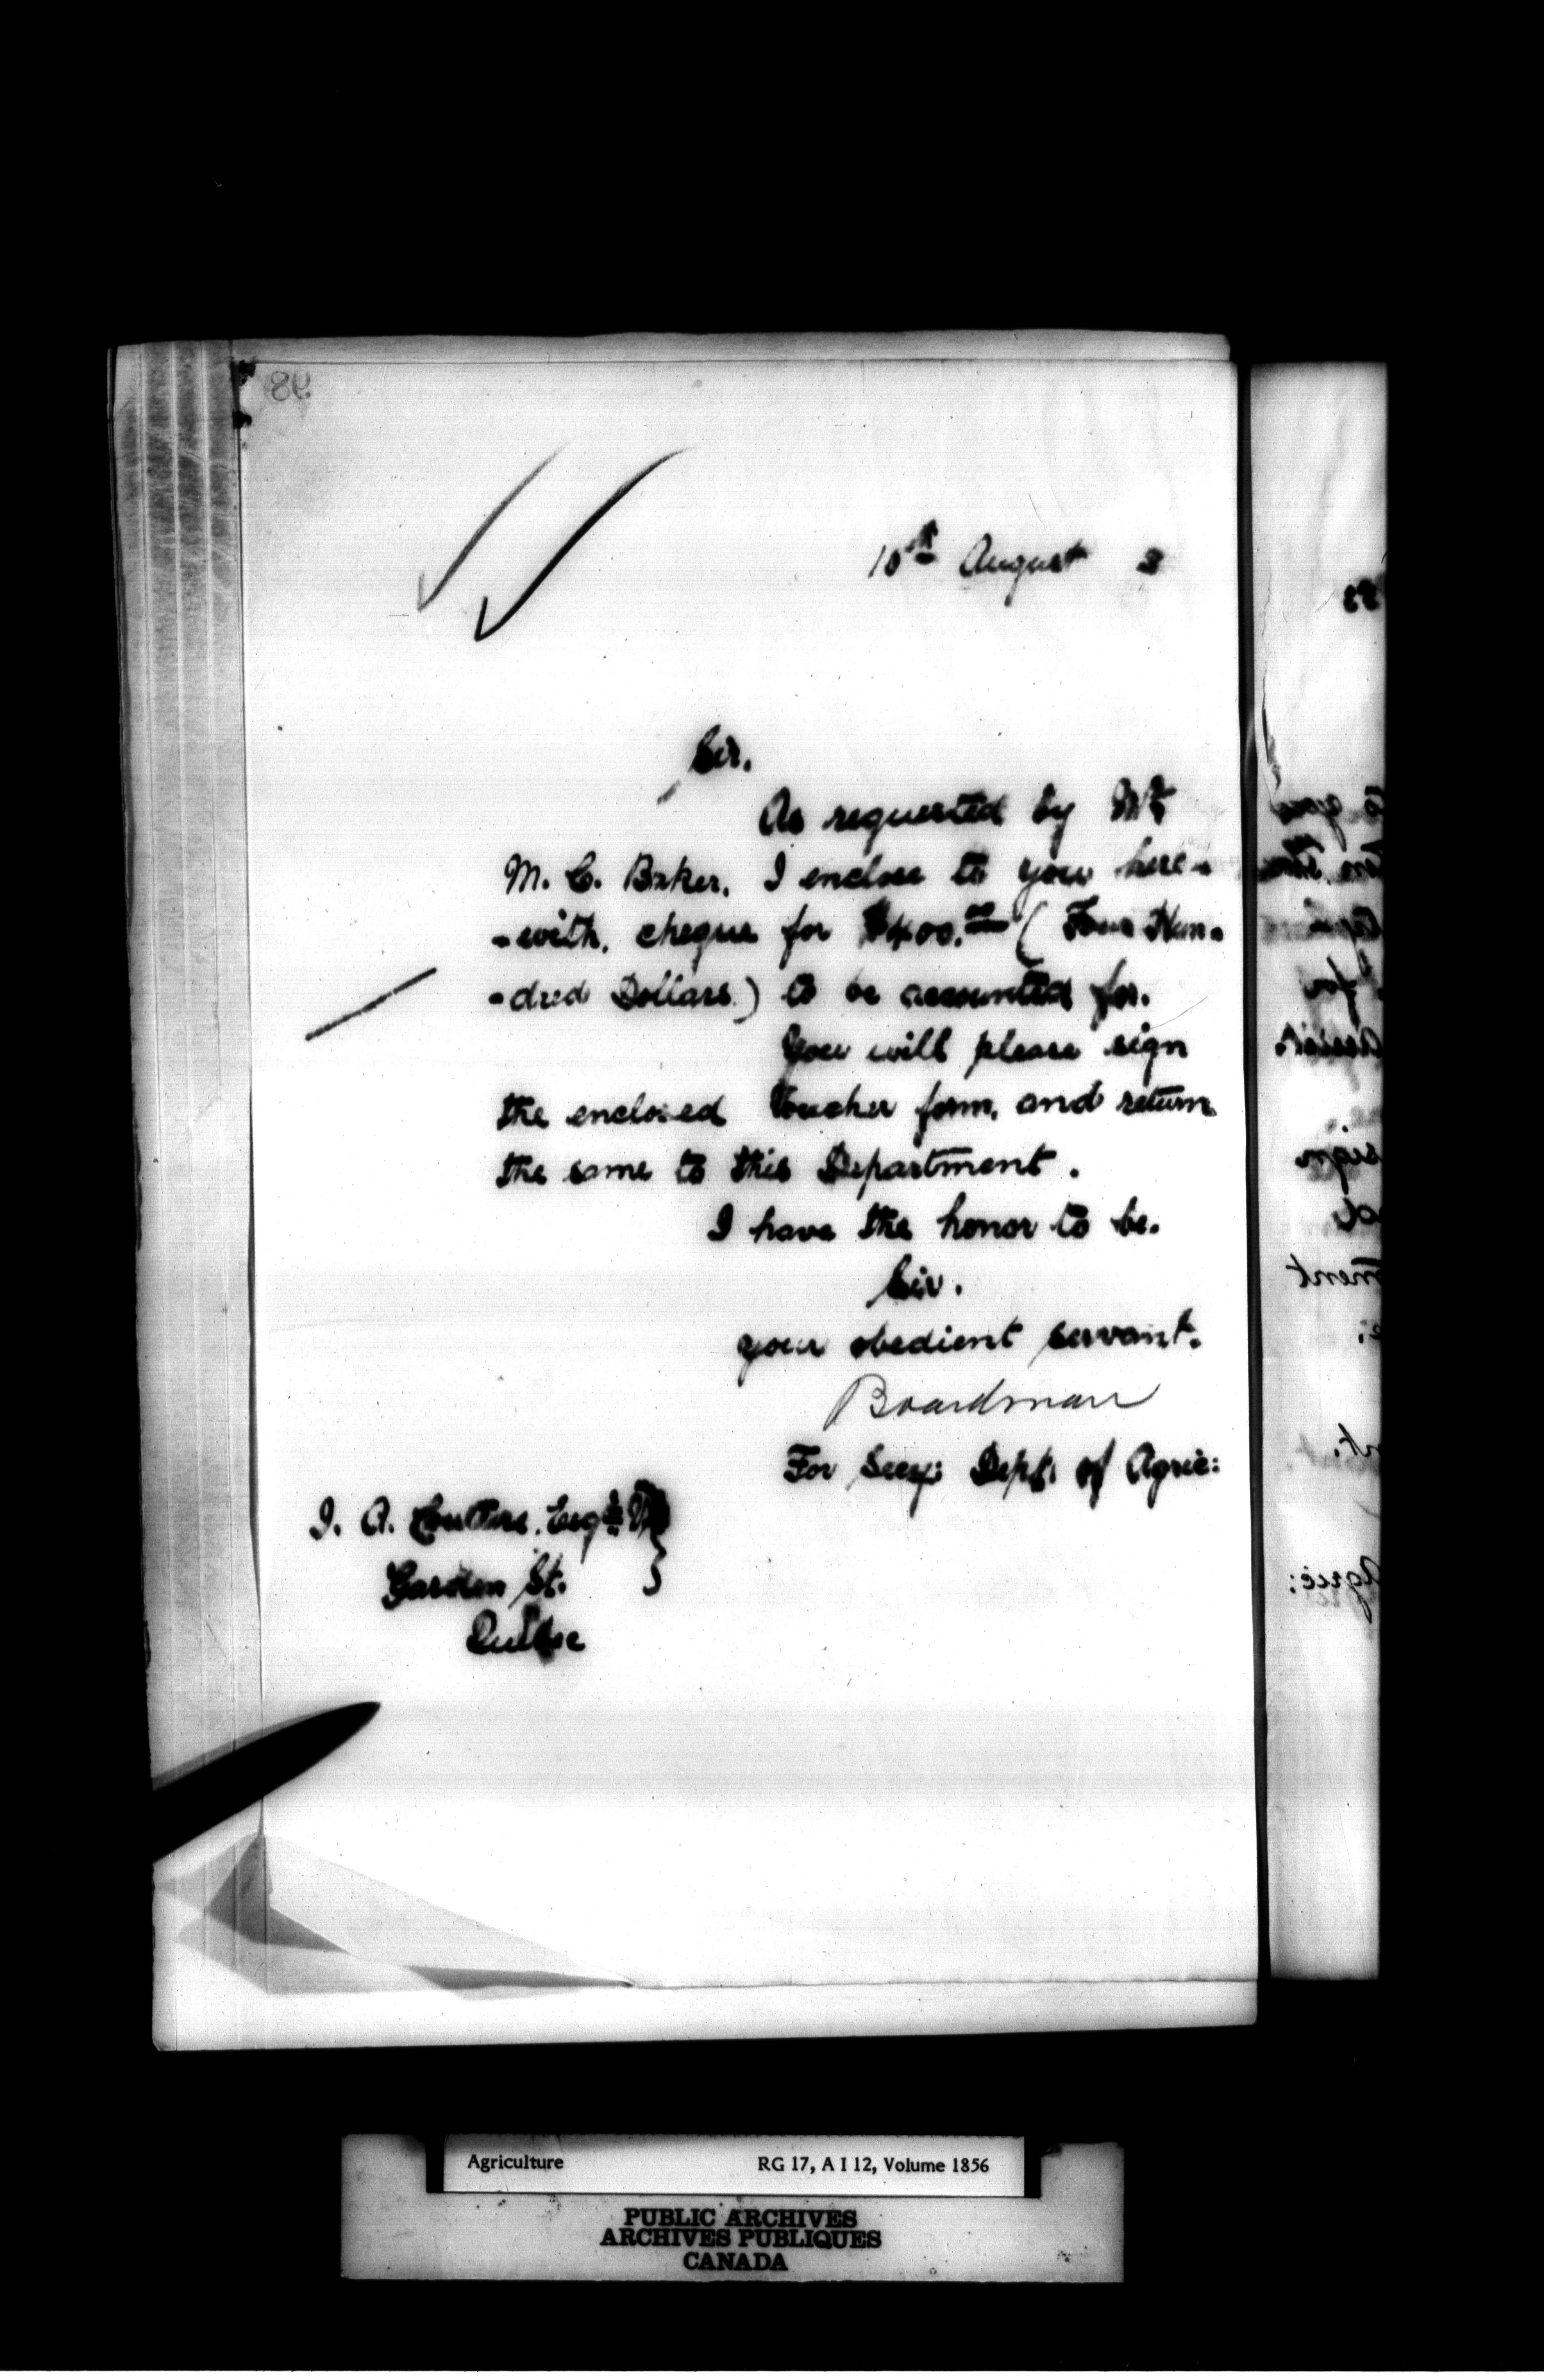 10th August 3
Sir.
As requested by Mr
M. C. Baker, I enclose to you here-
-with, cheque for $400.00 (Four Hun-
-dred Dollars) to be accounted for.
You will please sign
the enclosed Voucher form, and return
the same to this Department.
I have the honor to be.
Sir.
your obedient servant.
Boardman
For Secy: Dept. of Agric:
J. A. Couture. Esqre
Garden St.
Quebec
Agriculture RG 17, A I 12, Volume 1856
PUBLIC ARCHIVES
ARCHIVES PUBLIQUES
CANADA